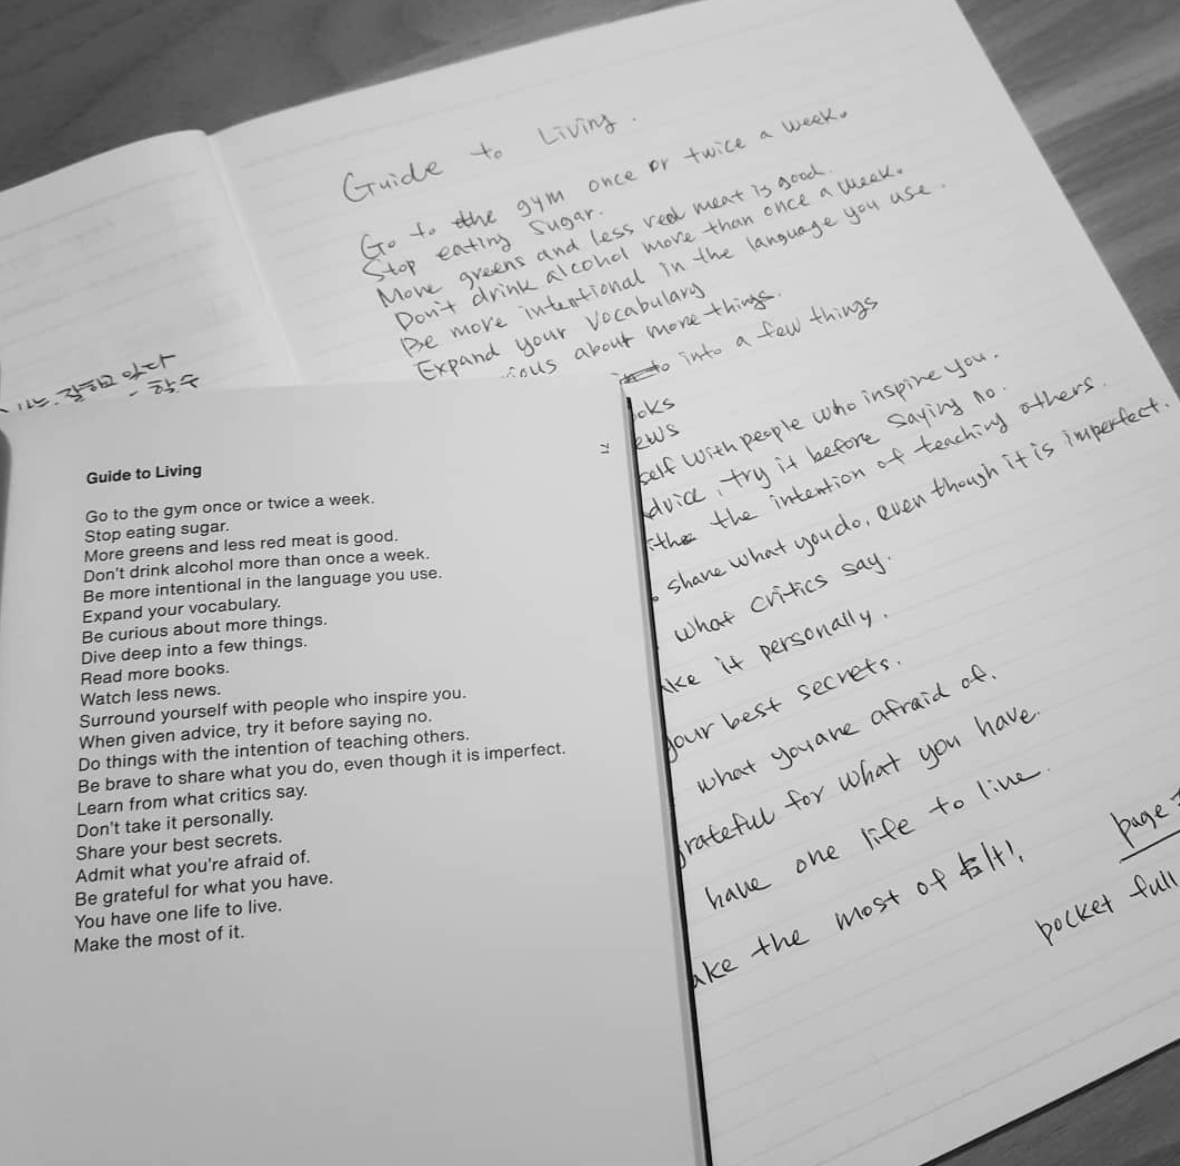 Guide to Living.
Go to the gym once or twice a week.
Stop eating sugar.
More greens and less red meat is good.
Don't drink alcohol more than once a week.
Be more intentional in the language you use.
Expand your vocabulary
ious about more things.
into a few things
oks
ews
self with people who inspire you.
dvice, try it before saying no.
the intention of teaching others.
share what you do, even though it is imperfect.
what critics say.
ake it personally.
your best secrets.
what you are afraid of.
grateful for what you have.
have one life to live.
ake the most of it!
page
pocket full
잘하고 있다
Guide to Living
Go to the gym once or twice a week.
Stop eating sugar.
More greens and less red meat is good.
Don't drink alcohol more than once a week.
Be more intentional in the language you use.
Expand your vocabulary.
Be curious about more things.
Dive deep into a few things.
Read more books.
Watch less news.
Surround yourself with people who inspire you.
When given advice, try it before saying no.
Do things with the intention of teaching others.
Be brave to share what you do, even though it is imperfect.
Learn from what critics say.
Don't take it personally.
Share your best secrets.
Admit what you're afraid of.
Be grateful for what you have.
You have one life to live.
Make the most of it.